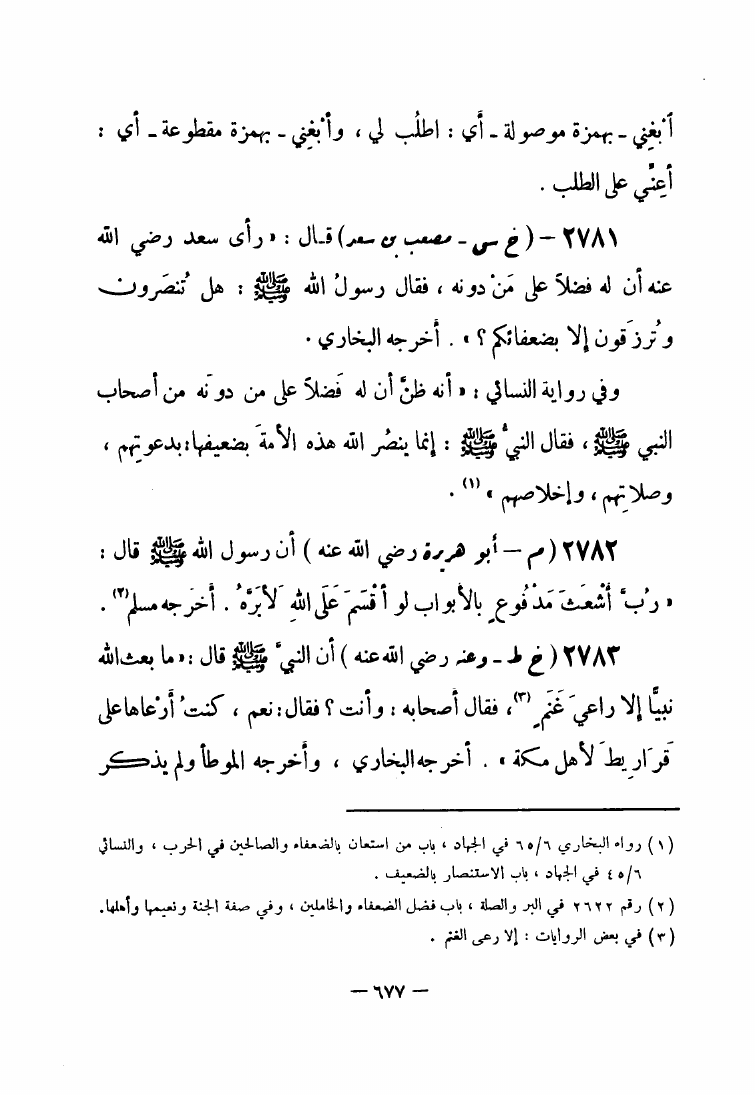 ٱبْغِني ـ بهمزة موصولة ـ أَي : اطلُب لي ، وأَبْغِني ـ بهمزة مقطوعة ـ أي :
أَعِنِّي على الطلب .
٢٧٨١ – ( خ س – مصعب بن سعد ) قال : « رأى سعد رضي الله
عنه أن له فضلاً على مَنْ دونه ، فقال رسولُ الله ﷺ : هل تُنصَرون
وتُرزَقون إلا بضعفائكم ؟ » . أخرجه البخاري .
وفي رواية النسائي : « أنه ظنَّ أن له فَضلاً على من دونَه من أصحاب
النبي ﷺ ، فقال النبيُّ ﷺ : إنما ينصُر الله هذه الأمةَ بضعيفها : بدعوتِهم ،
وصلاتِهم ، وإخلاصهم » (١) .
٢٧٨٢ ( م – أبو هريرة رضي الله عنه ) أن رسول الله ﷺ قال :
« رُبَّ أَشْعَثَ مَدْفُوعٍ بالأبواب لو أَقْسَمَ عَلَى اللهِ لَأَبَرَّهُ . أخرجه مسلم (٢) .
٢٧٨٣ ( خ ط – وعنه رضي الله عنه ) أن النبيَّ ﷺ قال : « ما بعث الله
نبيًّا إلا راعيَ غَنَمٍ (٣) ، فقال أصحابه : وأنت ؟ فقال : نعم ، كنتُ أَرْعاها على
قَرَاريطَ لأهل مكة » . أخرجه البخاري ، وأخرجه الموطأ ولم يذكر
(١) رواه البخاري ٦/٦٥ في الجهاد ، باب من استعان بالضعفاء والصالحين في الحرب ، والنسائي
٦/٤٥ في الجهاد ، باب الاستنصار بالضعيف .
(٢) رقم ٢٦٢٢ في البر والصلة ، باب فضل الضعفاء والخاملين ، وفي صفة الجنة ونعيمها وأهلها.
(٣) في بعض الروايات : إلا رعى الغنم .
– ٦٧٧ –